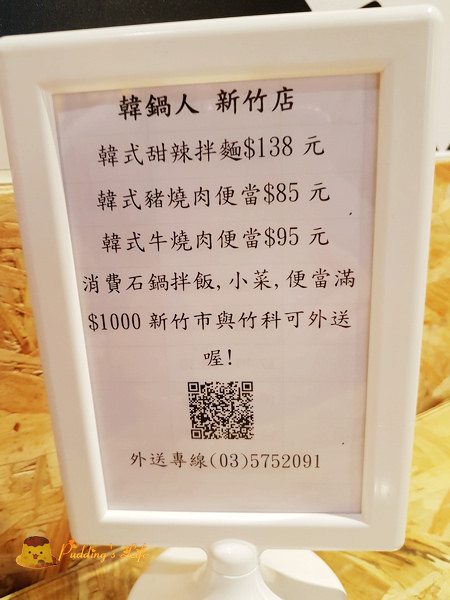 韓鍋人 新竹店
韓式甜辣拌麵$138 元
韓式豬燒肉便當$85 元
韓式牛燒肉便當$95 元
消費石鍋拌飯,小菜,便當滿
$1000 新竹市與竹科可外送
喔!
外送專線(03)5752091
Pudding's Life